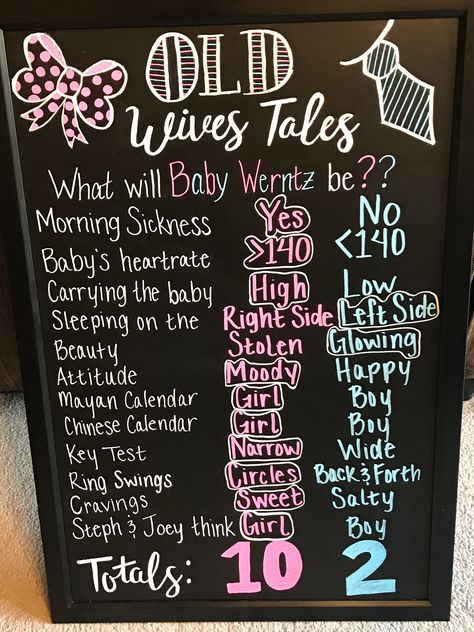 OLD
Wives Tales
What will Baby Werntz be??
Morning Sickness Yes No
Baby's heartrate >140 <140
Carrying the baby High Low
Sleeping on the Right Side Left Side
Beauty Stolen Glowing
Attitude Moody Happy
Mayan Calendar Girl Boy
Chinese Calendar Girl Boy
Key Test Narrow Wide
Ring Swings Circles Back & Forth
Cravings Sweet Salty
Steph & Joey think Girl Boy
Totals: 10 2